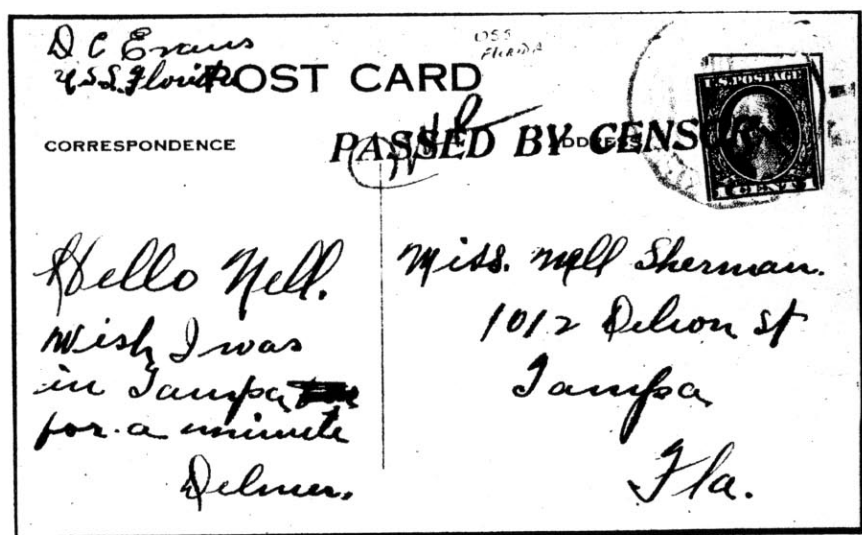 D C Evans
U.S.S. Florida
USS
FLORIDA
POST CARD
U.S. POSTAGE
CORRESPONDENCE
ADDRESS
PASSED BY CENSOR
CENT
Hello Nell.
Wish I was
in Tampa
for a minute
Delmer.
Miss. Nell Sherman.
1012 St
Tampa
Fla.